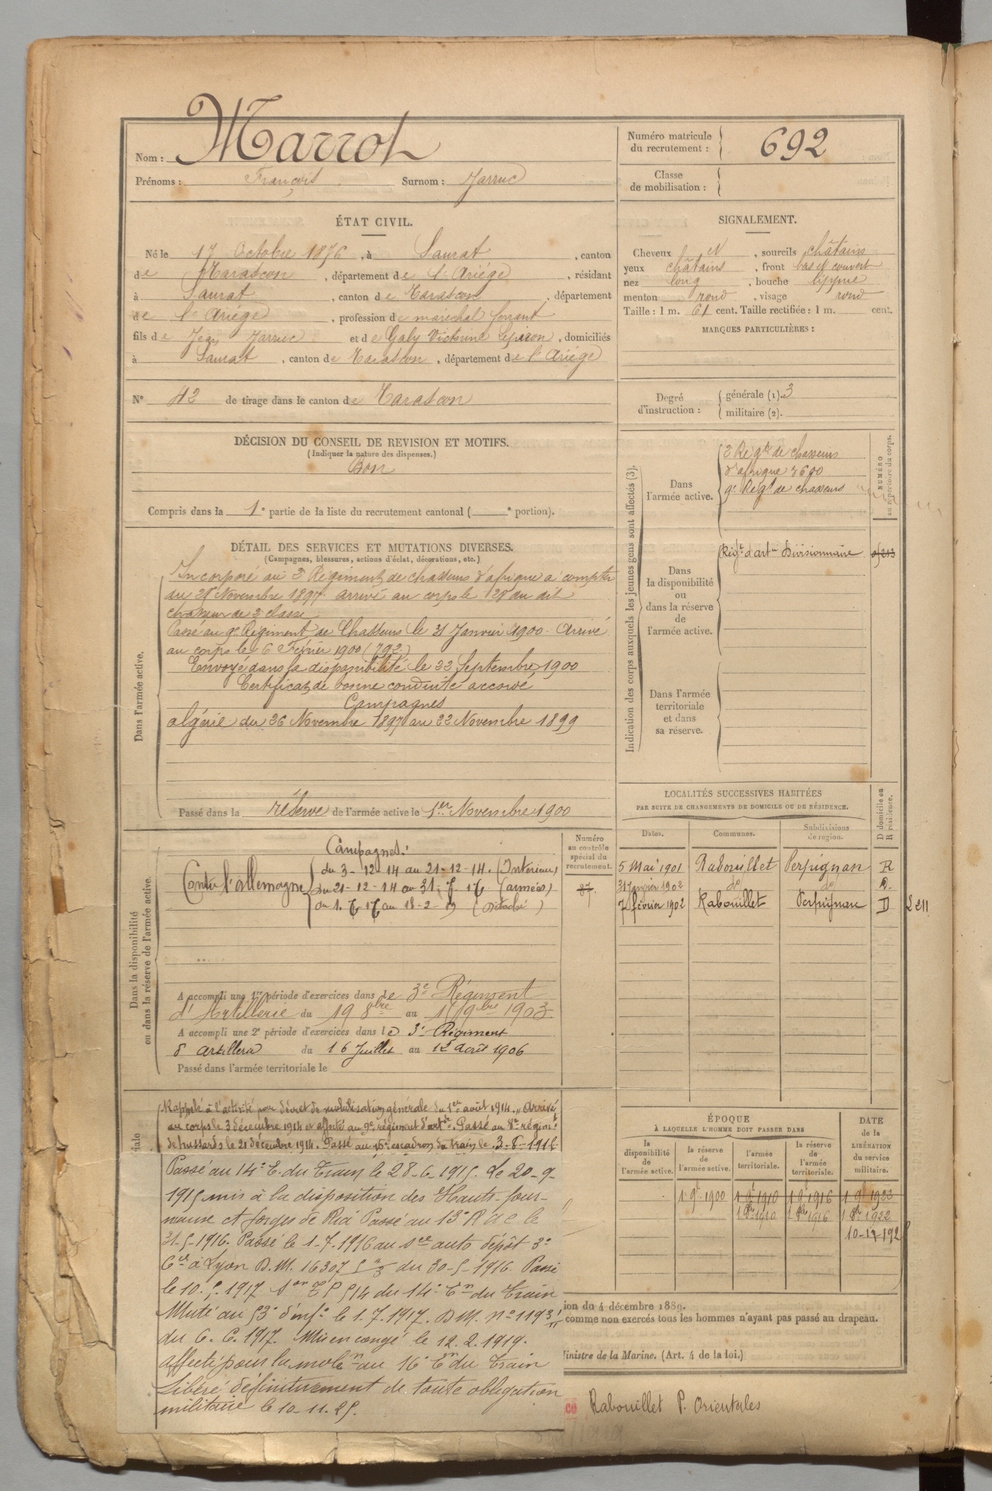 Nom : Marrot
Prénoms : François Surnom : Jarruc
Numéro matricule du recrutement : 692
Classe de mobilisation :
ÉTAT CIVIL.
Né le 17 Octobre 1876, à Saurat, canton
de Tarascon, département de l'Ariège, résidant
à Saurat, canton de Tarascon, département
de l'Ariège, profession de maréchal ferrant
fils de Jean Jarruc et de Galy Victorine, domiciliés
à Saurat, canton de Tarascon, département de l'Ariège
N° 42 de tirage dans le canton de Tarascon
SIGNALEMENT.
Cheveux et, sourcils châtains
yeux châtains, front bas et couvert
nez long, bouche lippue
menton rond, visage rond
Taille : 1 m. 61 cent. Taille rectifiée : 1 m. cent.
MARQUES PARTICULIÈRES :
Degré d'instruction : générale (1). 3
militaire (2).
DÉCISION DU CONSEIL DE REVISION ET MOTIFS.
(Indiquer la nature des dispenses.)
Bon
Compris dans la 1e partie de la liste du recrutement cantonal ( e portion).
DÉTAIL DES SERVICES ET MUTATIONS DIVERSES.
(Campagnes, blessures, actions d'éclat, décorations, etc.)
Dans l'armée active.
Incorporé au 3 Régiment de chasseurs d'afrique à compter
du 26 Novembre 1897 arrivé au corps le 28 au dit
chasseur de 2 classe
Passé au 9e Régiment de Chasseurs le 31 Janvier 1900. Arrivé
au corps le 6 Février 1900 (792)
Envoyé dans la disponibilité le 22 Septembre 1900
Certificat de bonne conduite accordé
Campagnes
algérie du 26 Novembre 1897 au 22 Novembre 1899
Passé dans la réserve de l'armée active le 1er Novembre 1900
Indication des corps auxquels les jeunes gens sont affectés (3).
Dans l'armée active.
3 Régt de chasseurs
d'afrique 3690
9e Régt de chasseurs
NUMÉRO
au répertoire du corps.
Dans la disponibilité ou dans la réserve de l'armée active.
Régt d'art. Divisionnaire
Dans l'armée territoriale et dans sa réserve.
LOCALITÉS SUCCESSIVES HABITÉES
PAR SUITE DE CHANGEMENTS DE DOMICILE OU DE RÉSIDENCE.
Dates. Communes. Subdivisions de région. D domicile ou R résidence.
5 Mai 1901 Rabouillet Perpignan R
21 Janvier 1902 do do R.
7 février 1902 Rabouillet Perpignan D
Dans la disponibilité ou dans la réserve de l'armée active.
Numéro au contrôle spécial du recrutement.
Campagnes.
Contre l'allemagne
du 3-12-14 au 21-12-14. (Intérieur)
du 21-12-14 au (armées)
du au (Détaché)
A accompli une 1re période d'exercices dans le 3e Régiment
d'Artillerie du 19 8bre au 1903
A accompli une 2e période d'exercices dans le 3e Régiment
d'artillerie du 16 Juillet au 12 août 1906
Passé dans l'armée territoriale le
Rappelé à l'activité par décret de mobilisation générale du 1er août 1914. Arrivé
au corps le 3 décembre 1914 et affecté au 9e régiment d'art. Passé au régiont
de hussards le 21 décembre 1914. Passé au 16e escadron du train le
Passé au 14e E. du Train le 28-6-1915. Le 20-9-
1915 mis à la disposition des Hauts-four-
neaux et forges de Ria Passé au 13e R d C le
31-5-1916. Passé le 1-7-1916 au auto dépôt 3e
Cie à Lyon D.M. 16307 du 30-5-1916. Passé
le 1917 du 14e Eon du Train
Muté au 53e d'infie le 1.7.1917. D.M. n° 1193
du 6.6.1917. Mis en congé le 12.2.1919.
affecté pour la mobon au 16e Eon du Train
Libéré définitivement de toute obligation
militaire le 10-11-25.
ÉPOQUE
À LAQUELLE L'HOMME DOIT PASSER DANS
la disponibilité de l'armée active. la réserve de l'armée active. l'armée territoriale. la réserve de l'armée territoriale.
DATE de la LIBÉRATION du service militaire.
1 9e 1900 1 9e 1910 1 9e 1916 1 9e 1923
1 1910 1 1916 1 1922
ion du 4 décembre 1889.
comme non exercés tous les hommes n'ayant pas passé au drapeau.
Ministre de la Marine. (Art. 4 de la loi.)
Rabouillet P. Orientales